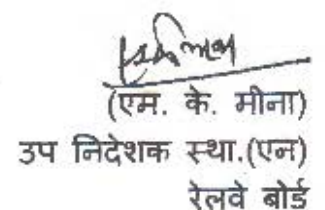 (एम. के. मीना)
उप निदेशक स्था.(एन)
रेलवे बोर्ड